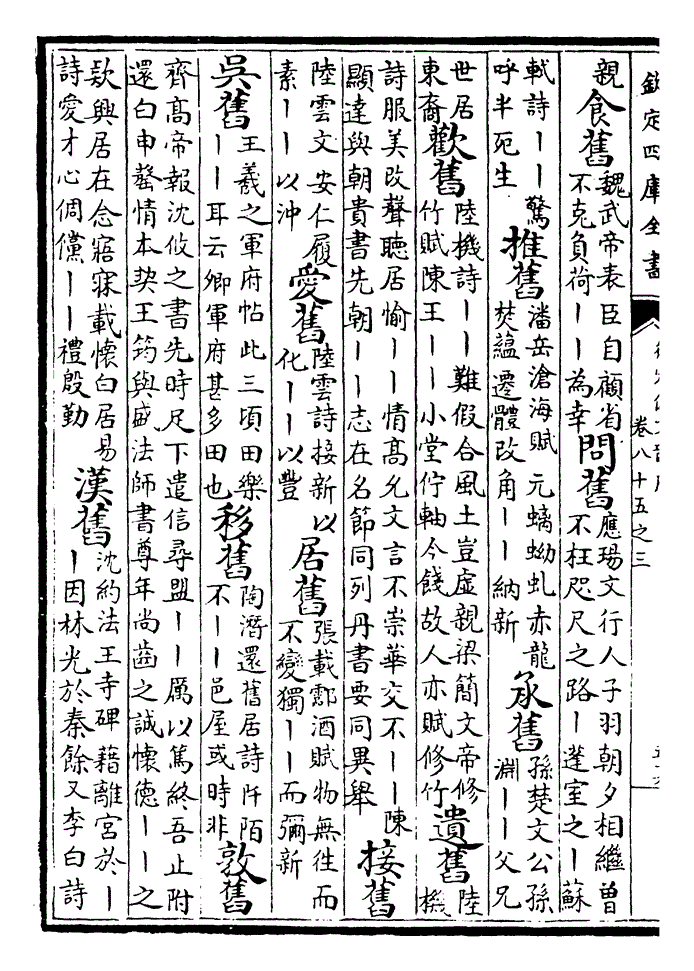 欽定四庫全書
卷八十五之三
親
食舊
魏武帝表臣自顧省
不克負荷丨丨為幸
問舊
應瑒文行人子羽朝夕相繼曾
不枉咫尺之路丨邃室之丨蘇
軾詩丨丨驚
呼半死生
推舊
潘岳滄海賦元螭蚴虬赤龍
焚藴遷體改角丨丨納新
承舊
孫楚文公孫
淵丨丨父兄
世居
東裔
歡舊
陸機詩丨丨難假合風土豈虛親梁簡文帝修
竹賦陳王丨丨小堂佇軸今餞故人亦賦修竹
遺舊
陸
機
詩服美改聲聽居愉丨丨情高允文言不崇華交不丨丨陳
顯達與朝貴書先朝丨丨志在名節同列丹書要同異舉
接舊
陸雲文安仁履
素丨丨以沖
愛舊
陸雲詩接新以
化丨丨以豐
居舊
張載酃酒賦物無往而
不變獨丨丨而彌新
吳舊
王羲之軍府帖此三頃田樂
丨丨耳云卿軍府甚多田也
移舊
陶潛還舊居詩阡陌
不丨丨邑屋或時非
敦舊
齊高帝報沈攸之書先時足下遣信尋盟丨丨厲以篤終吾止附
還白申罄情本契王筠與盛法師書尊年尚齒之誠懷德丨丨之
欵興居在念寤寐載懷白居易
詩愛才心倜儻丨丨禮殷勤
漢舊
沈約法王寺碑藉離宮於丨
丨因林光於秦餘又李白詩